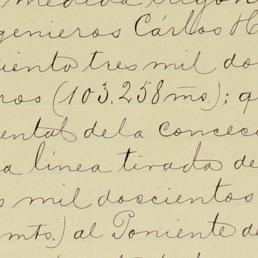 medida trigon
genieros Cárlos H
iento tres mil do
ros (103.258 ms.); q
ental de la conces
a línea tirada de
s mil doscientos
mts.) al Poniente de